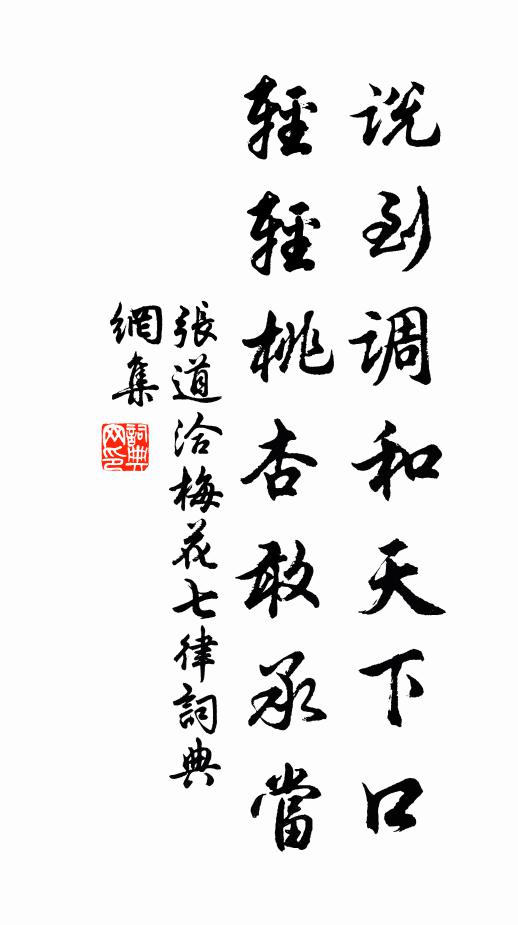 说到调和天下口
輕輕桃杏敢承當
張道洽梅花七律詞典
網集
詞典網印